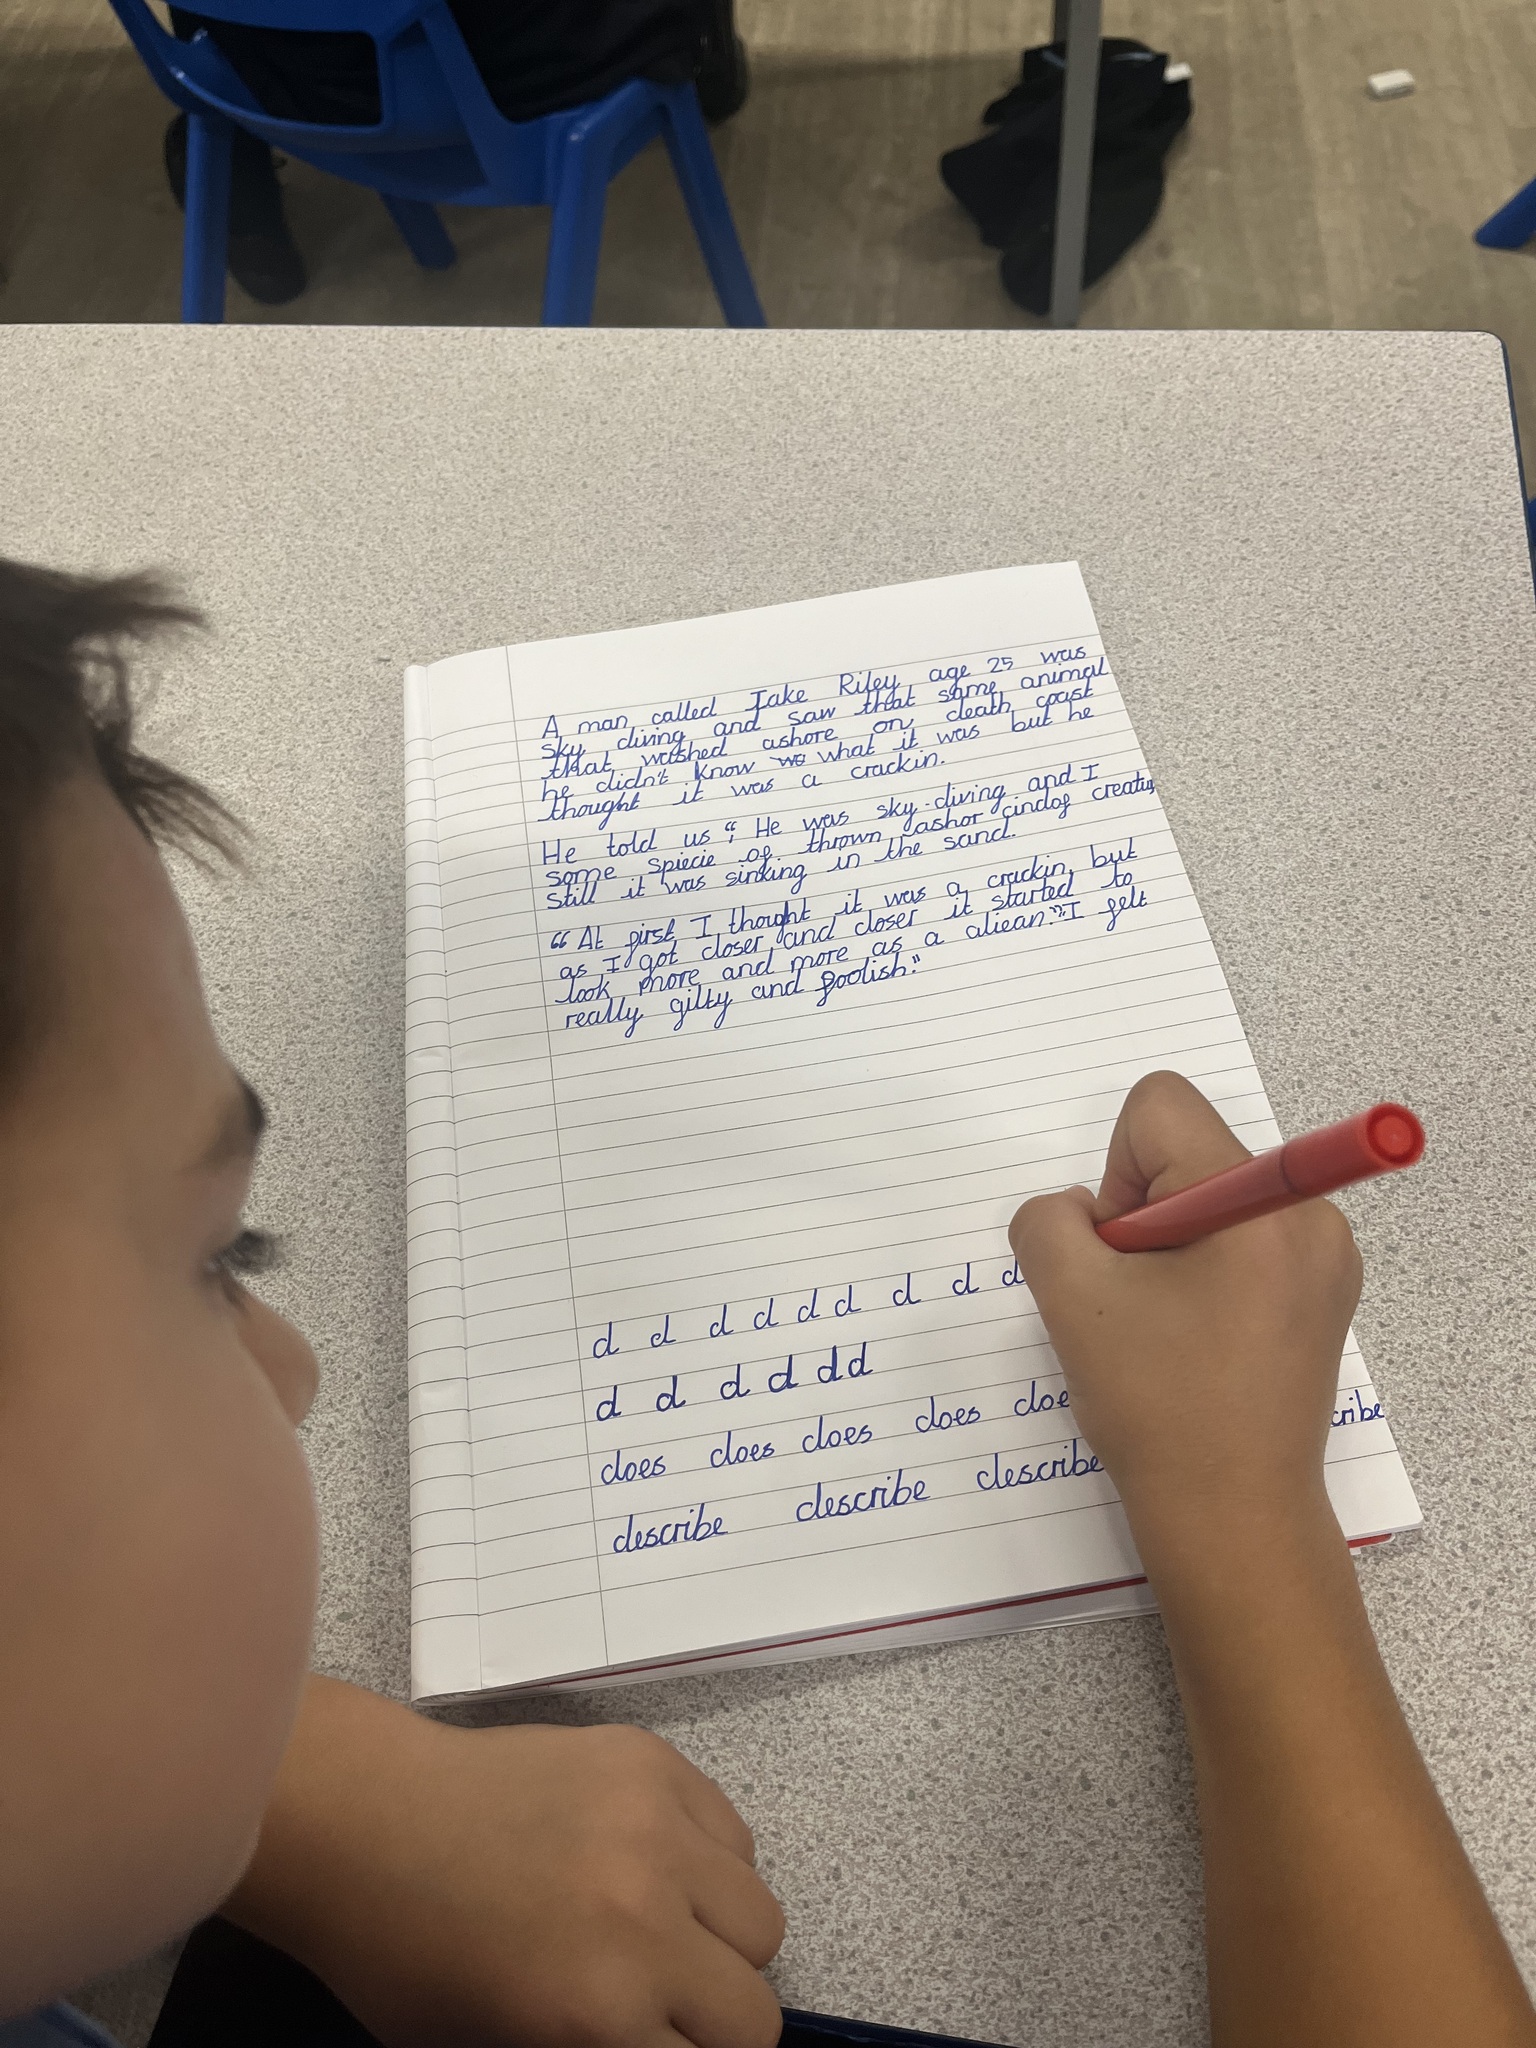 A man called Jake Riley age 25 was
sky diving and saw that some animal
that washed ashore on death coast
he didn't know wo what it was but he
thought it was a crackin.
He told us “, He was sky-diving and I
some spiecie of thrown ashor cindof creating
still it was sinking in the sand.
“ At first I thought it was a crackin, but
as I got closer and closer it started to
look more and more as a aliean.” I felt
really gilty and foolish.”
d d d d d d d d d
d d d d d d
does does does does doe
describe describe describe cribe